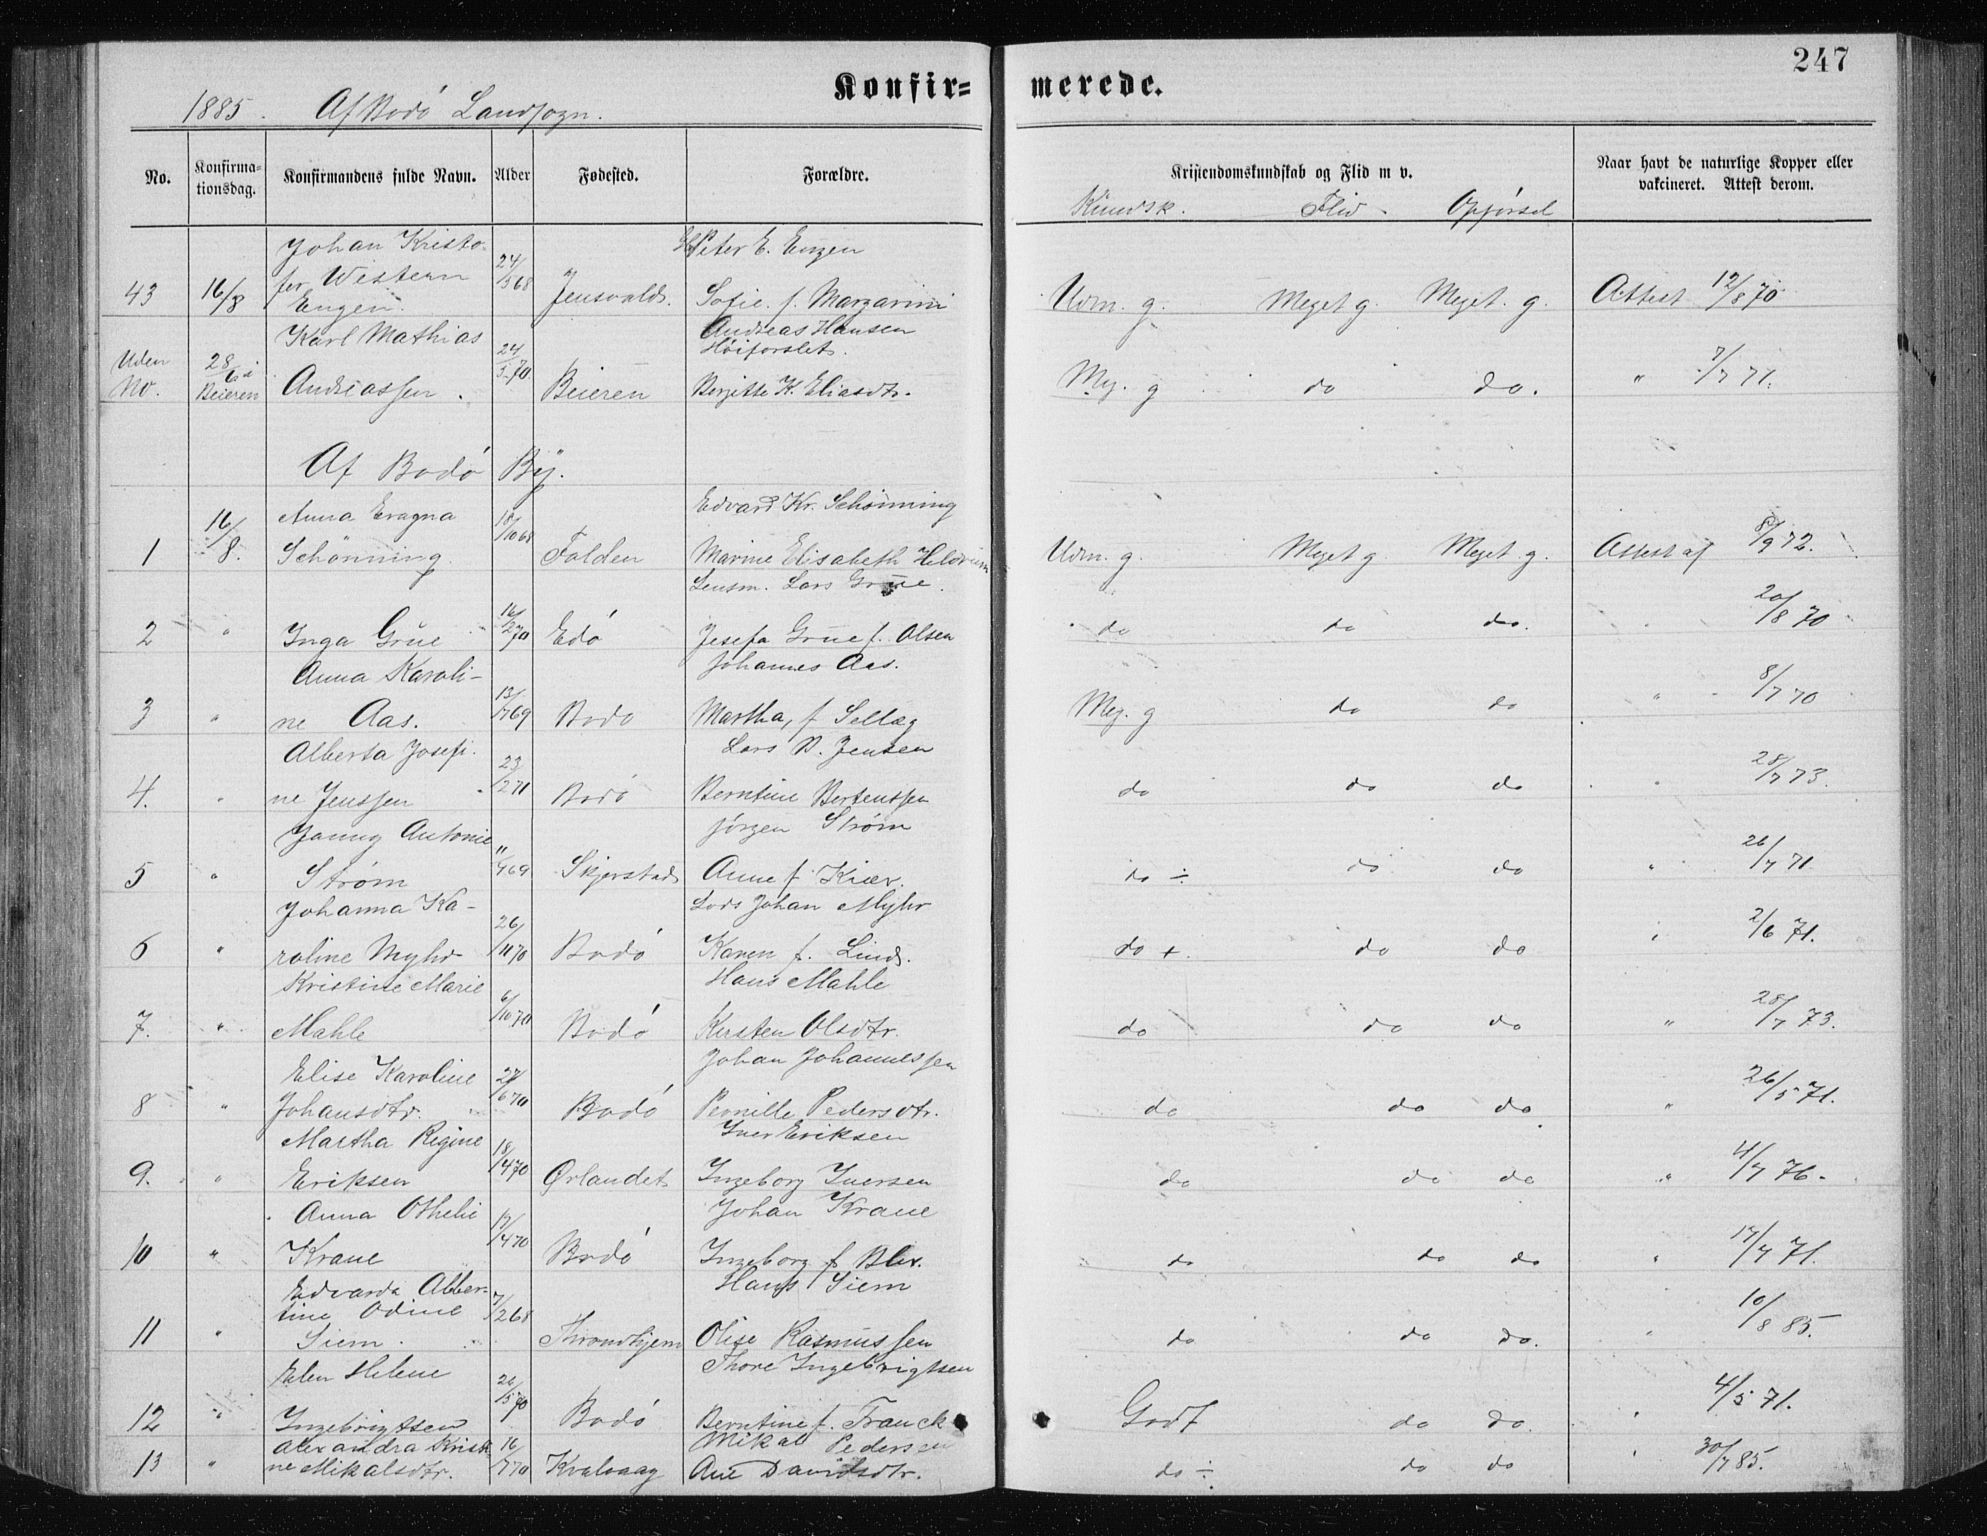 247
Konfir= merede.
1885. Af Bodö Landsogn.
No. Konfirma=tionsdag. Konfirmandens fulde Navn. Alder Fødested. Forældre. Kristendomskundskab og Flid m v. Naar havt de naturlige Kopper eller vakcineret. Attest derom.
Kundsk. Flid. Opførsel
Johan Kristo- Peter E. Engen
fer Western 24/5 68
43 16/8 Engen. Jensvold. Sofie f. Margarini Udm. g. Meget g. Meget. g. Attest 12/8 70
Karl Mathias Andreas Hansen
Uden 28/6 i 24/5 70 Høiforslet.
No. Beieren Andreassen. Beieren Bergitte K. Eliasdtr. Mg. g do do. " 7/7 71.
Af Bodö By.
Anna Eragna Edvard Kr. Schönning
1 16/8. Schönning 18/10 68 Folden Marine Elisabeth Udm. g. Meget g Meget g. Attest af 8/9 72.
Lensm. Lars Grue.
2 " Inga Grüe 16/2 70 Edö Jesefa Grue f. Olsen do do do. 20/8 70
Anna Karoli- Johannes Aas.
3 " ne Aas. 13/7 69 Bodo Martha, f Sellæg Meg. g do do " 8/7 70
Alberta Josefi- Lars D. Jensen
4. " ne Jenssen 23/2 71 Bodö Berntine Bertenssen do do do " 28/7 73.
Janny Antonie Jörgen Strøm
5 " Strøm 11/9 69 Skjerstad Anne f Kiær. do ÷ do do " 26/7 71.
Johanna Ka- Lods Johan Myhr
6 " roline Myhr 26/11 70 Bodö Karen f. Lind. do + do do " 2/6 71.
Kristine Marie Hans Mahle
7. " Mahle 6/10 70 Bodö Kirsten Olsdtr. do do do " 28/7 73.
Elise Karoline Johan Johannessen
8 " Johansdtr. 27/6 70 Bodö Pernille Pedersdtr. do do do " 26/5 71.
Martha Regine Iver Eriksen
9. " Eriksen 18/4 70 Ørlandet Ingeborg Iversen do do do " 4/7 76.
Anna Othelie Johan Krane
10 " Krane 17/4 70 Bodö Ingeborg f Blix. do do do " 17/7 71.
Edvarda Alber- Hans Siem
tine Odine 7/2 68
11 " Siem. Throndhjem Olise Rasmussen do do do. " 10/8 85.
Elen Helene Thore Ingebrigtsen
12 " Ingebrigtsen 26/5 70 Bodö Berntine f. Franck Godt do do. " 4/5 71.
Alexandra Kristi Mikal Pedersen
13 " ne Mikalsdtr. 16/7 70 Kvalvaag Ane Davidsdtr. do ÷ do do " 30/7 85.